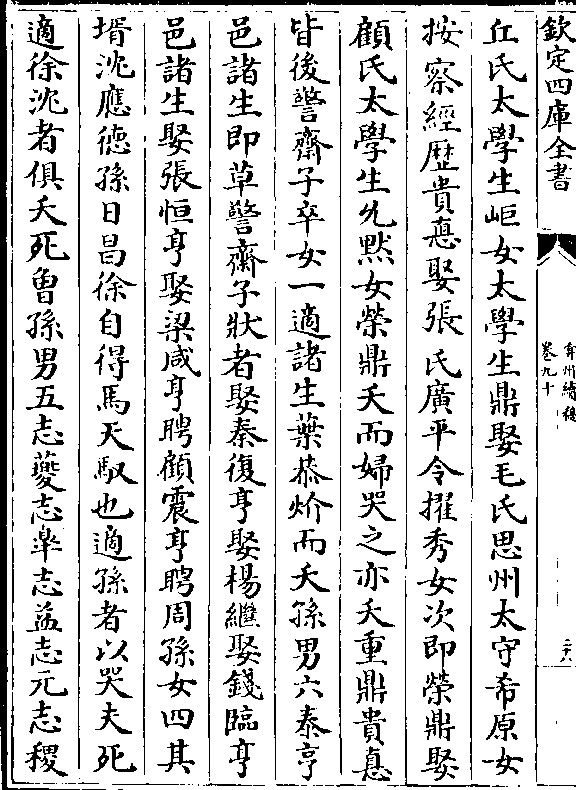 欽定四庫全書
弇州續稿
卷九十
二六
丘氏太學生岠女太學生鼎娶毛氏思州太守希原女
按察經歴貴惪娶張氏廣平令擢秀女次即榮鼎娶
顧氏太學生允黙女榮鼎夭而婦哭之亦夭重鼎貴惪
皆後警齋子卒女一適諸生葉恭炌而夭孫男六泰亨
邑諸生即草警齋子狀者娶秦復亨娶楊繼娶錢臨亨
邑諸生娶張恒亨娶梁咸亨聘顧震亨聘周孫女四其
壻沈應徳孫日昌徐自得馬天馭也適孫者以哭夫死
適徐沈者俱夭死曽孫男五志夔志臯志益志元志稷